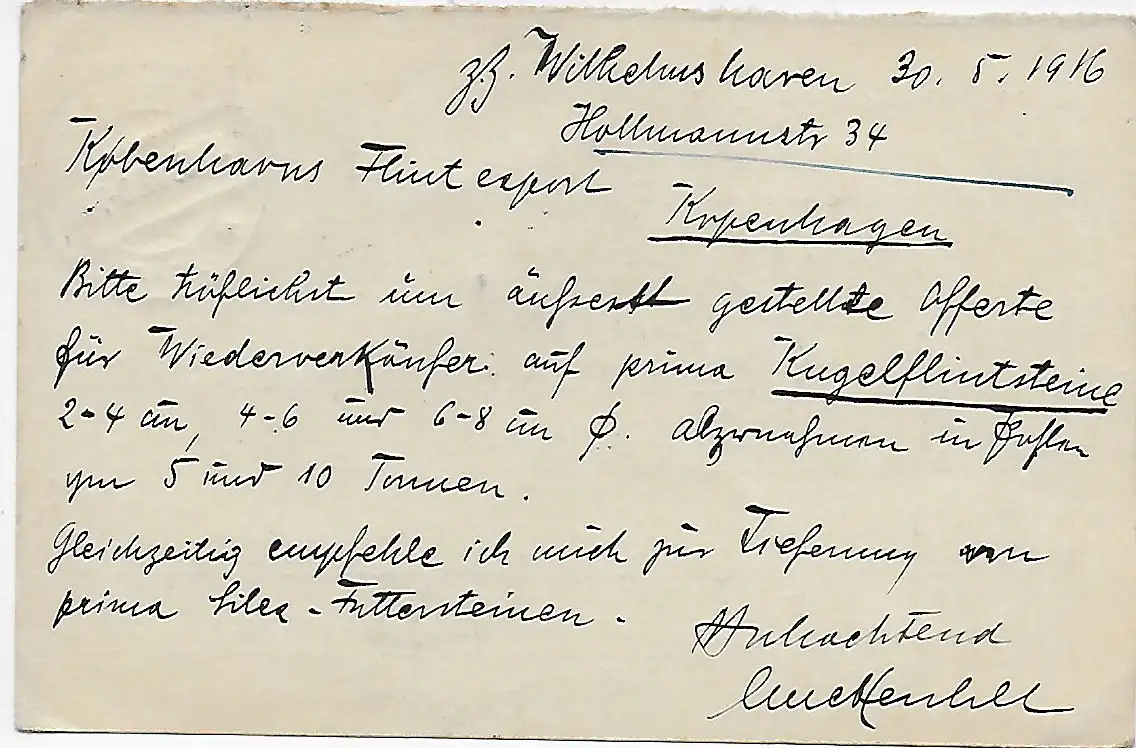 zZ. Wilhelmshaven 30. 5. 1916
Hollmannstr 34
Københavns Flintexport
Kopenhagen
Bitte höflichst um äußerst gestellte Offerte
für Wiederverkäufer auf prima Kugelflintsteine
2-4 cm, 4-6 und 6-8 cm ϕ. abzunehmen in
von 5 und 10 Tonnen.
Gleichzeitig empfehle ich mich zur Lieferung von
prima Silex-Futtersteinen.
Hochachtend